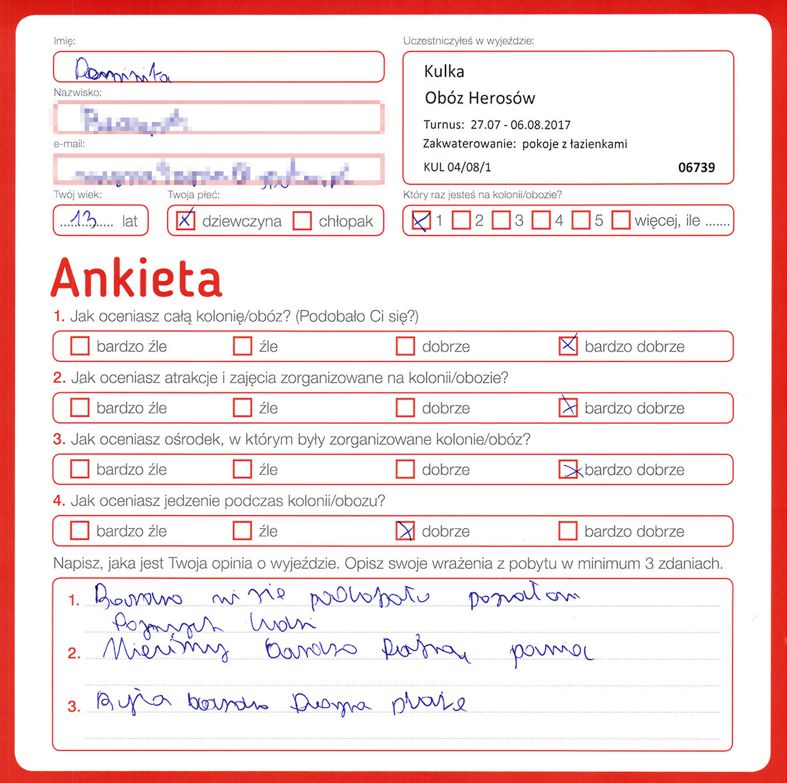 Imię:
Dominika
Nazwisko:
e-mail:
Twój wiek:
13 lat
Twoja płeć:
dziewczyna chłopak
Uczestniczyłeś w wyjeździe:
Kulka
Obóz Herosów
Turnus: 27.07 - 06.08.2017
Zakwaterowanie: pokoje z łazienkami
KUL 04/08/1 06739
Który raz jesteś na kolonii/obozie?
1 2 3 4 5 więcej, ile .......
Ankieta
1. Jak oceniasz całą kolonię/obóz? (Podobało Ci się?)
bardzo źle źle dobrze bardzo dobrze
2. Jak oceniasz atrakcje i zajęcia zorganizowane na kolonii/obozie?
bardzo źle źle dobrze bardzo dobrze
3. Jak oceniasz ośrodek, w którym były zorganizowane kolonie/obóz?
bardzo źle źle dobrze bardzo dobrze
4. Jak oceniasz jedzenie podczas kolonii/obozu?
bardzo źle źle dobrze bardzo dobrze
Napisz, jaka jest Twoja opinia o wyjeździe. Opisz swoje wrażenia z pobytu w minimum 3 zdaniach.
1. Bardzo mi się podobało poznałam
ludzi
2. Mieliśmy bardzo
3. Była bardzo plaża